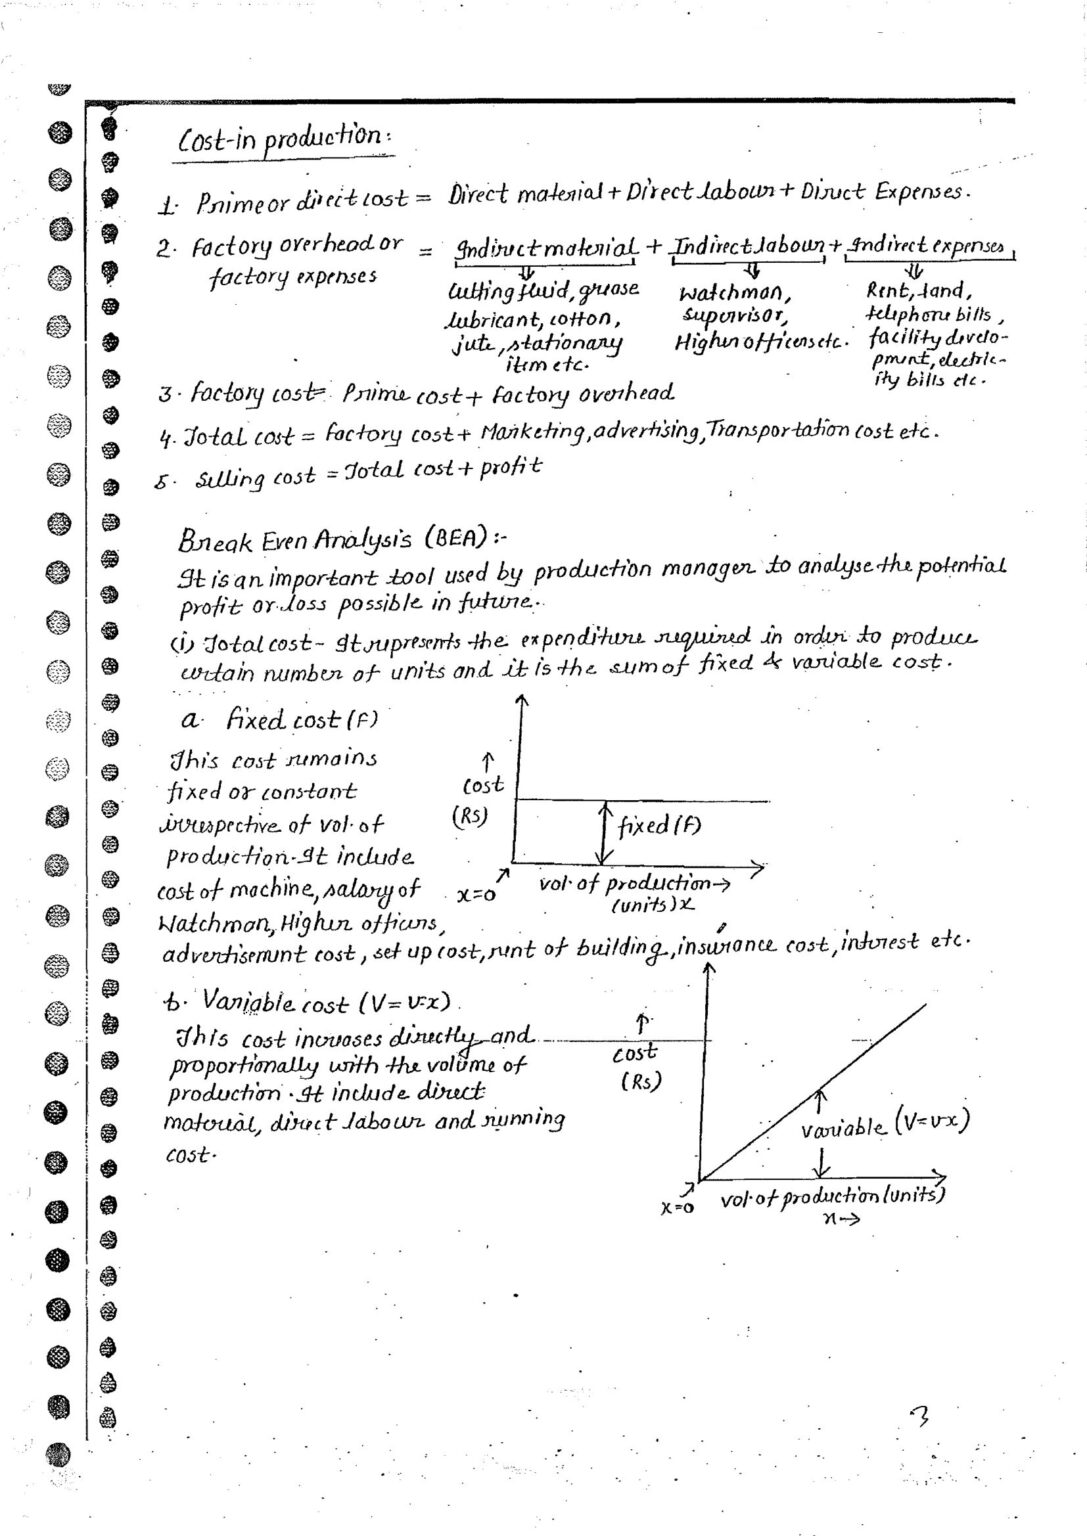 Cost-in production:
1. Prime or direct cost = Direct material + Direct labour + Direct Expenses.
2. Factory overhead or = Indirect material + Indirect labour + Indirect expenses,
factory expenses
Cutting fluid, grease
lubricant, cotton,
jute, stationary
item etc.
Watchman,
Supervisor,
Higher officers etc.
Rent, land,
telephone bills,
facility develo-
pment, electric-
ity bills etc.
3. Factory cost = Prime cost + Factory overhead
4. Total cost = Factory cost + Marketing, advertising, Transportation cost etc.
5. Selling cost = Total cost + profit
Break Even Analysis (BEA) :-
It is an important tool used by production manager to analyse the potential
profit or loss possible in future.
(i) Total cost - It represents the expenditure required in order to produce
certain number of units and it is the sum of fixed & variable cost.
a. Fixed cost (F)
This cost remains
fixed or constant
irrespective of vol. of
production. It include
cost of machine, salary of
Watchman, Higher officers,
advertisement cost, set up cost, rent of building, insurance cost, interest etc.
↑
cost
(Rs)
fixed (F)
x=0
vol. of production →
(units) x
b. Variable cost (V = v·x).
This cost increases directly and
proportionally with the volume of
production. It include direct
material, direct labour and running
cost.
↑
cost
(Rs)
variable (V = v·x)
x=0
vol. of production (units)
x →
3